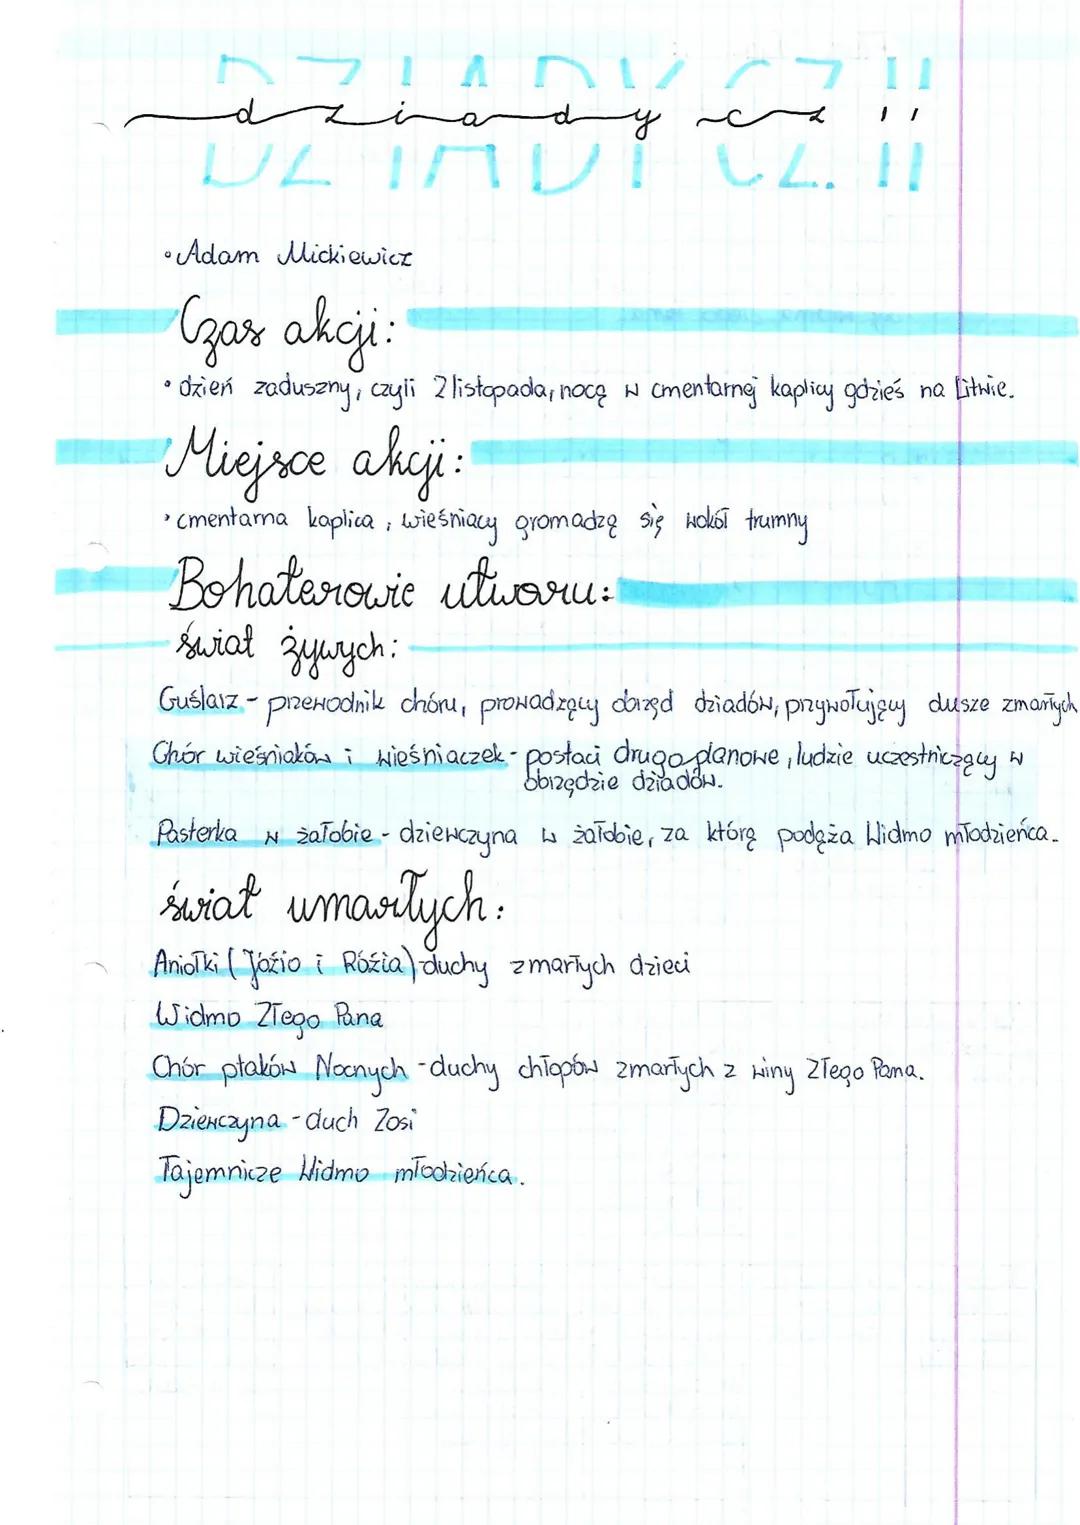 DZIADY CZ. II
dziady cz II
• Adam Mickiewicz
Czas akcji:
• dzień zaduszny, czyli 2 listopada, nocą w cmentarnej kaplicy gdzieś na Litwie.
Miejsce akcji:
• cmentarna kaplica, wieśniacy gromadzą się wokół trumny
Bohaterowie utworu:
świat żywych:
Guślarz - przewodnik chóru, prowadzący obrzęd dziadów, przywołujący dusze zmarłych
Chór wieśniaków i wieśniaczek - postaci drugoplanowe, ludzie uczestniczący w
obrzędzie dziadów.
Pasterka w żałobie - dziewczyna w żałobie, za którą podąża Widmo młodzieńca.
świat umarłych:
Aniołki (Józio i Rózia) - duchy zmarłych dzieci
Widmo Złego Pana
Chór ptaków Nocnych - duchy chłopów zmarłych z winy Złego Pana.
Dziewczyna - duch Zosi
Tajemnicze Widmo młodzieńca.